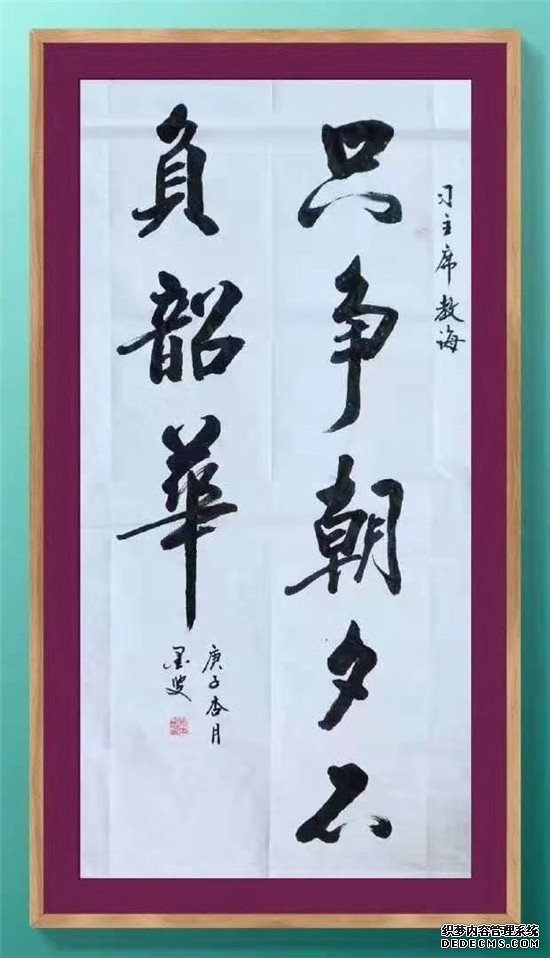 习主席教诲
只争朝夕不
负韶华
庚子杏月
墨叟
织梦内容管理系统
DEDECMS.COM